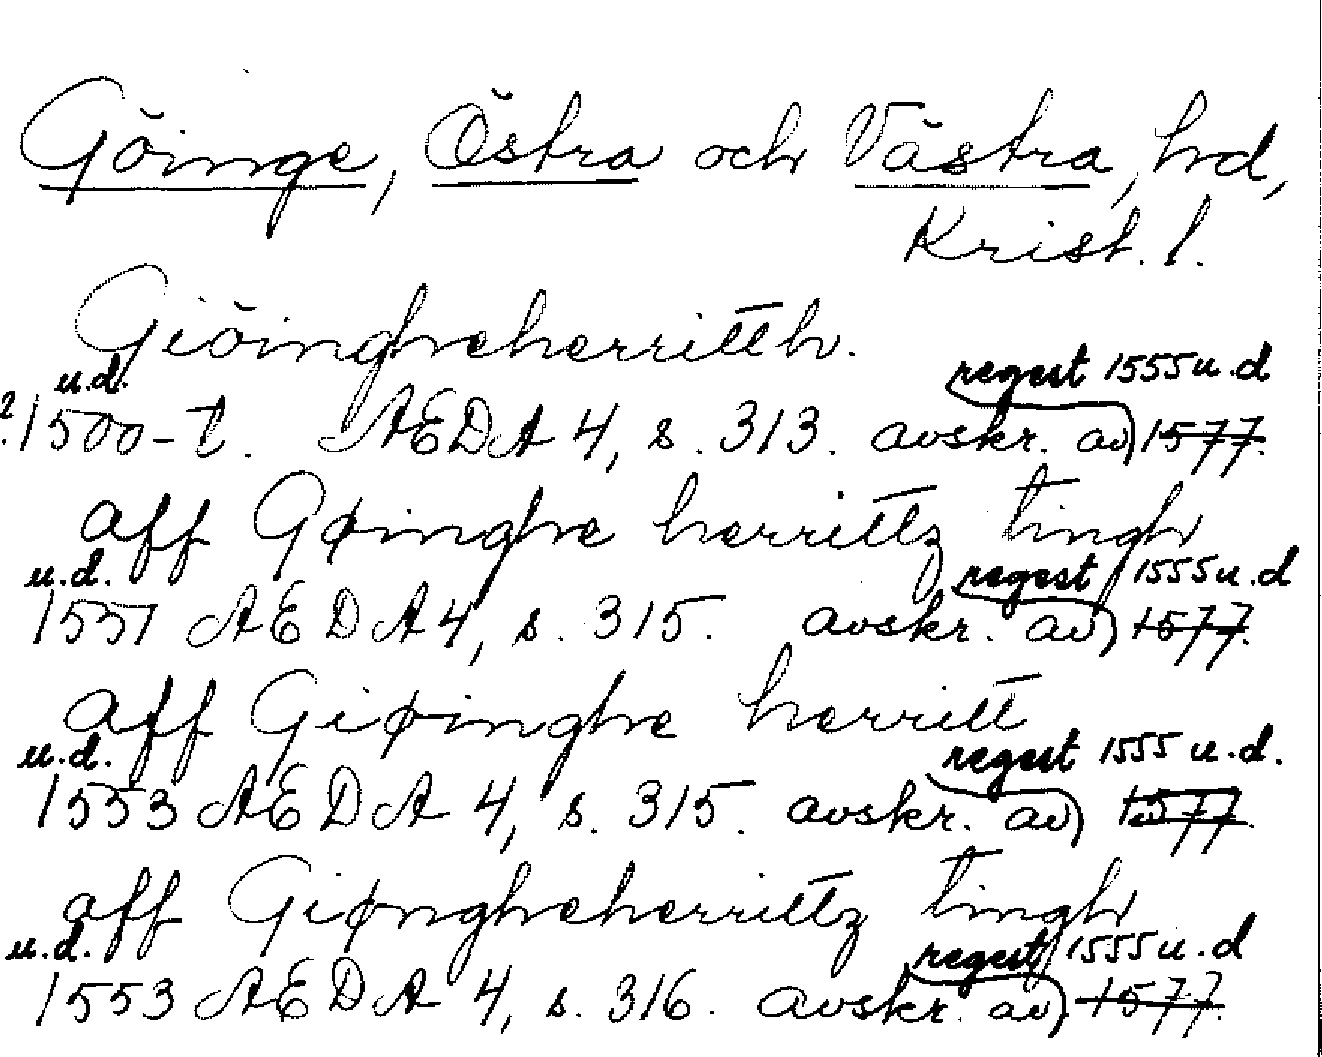 Göinge, Östra och Västra, hd,
Krist. l.
Giöingheherritth.
u.d. regest 1555 u.d
1500-t. AEDA 4, s. 313. avskr. av 1577.
aff Gøinghe herrittz tingh
u.d. regest 1555 u.d
1551 AEDA 4, s. 315. avskr. av 1577.
aff Giøinghe herritt
u.d. regest 1555 u.d.
1553 AEDA 4, s. 315. avskr. av 1577.
aff Giøngheherrittz tingh
u.d. regest 1555 u.d
1553 AEDA 4, s. 316. avskr. av 1577.